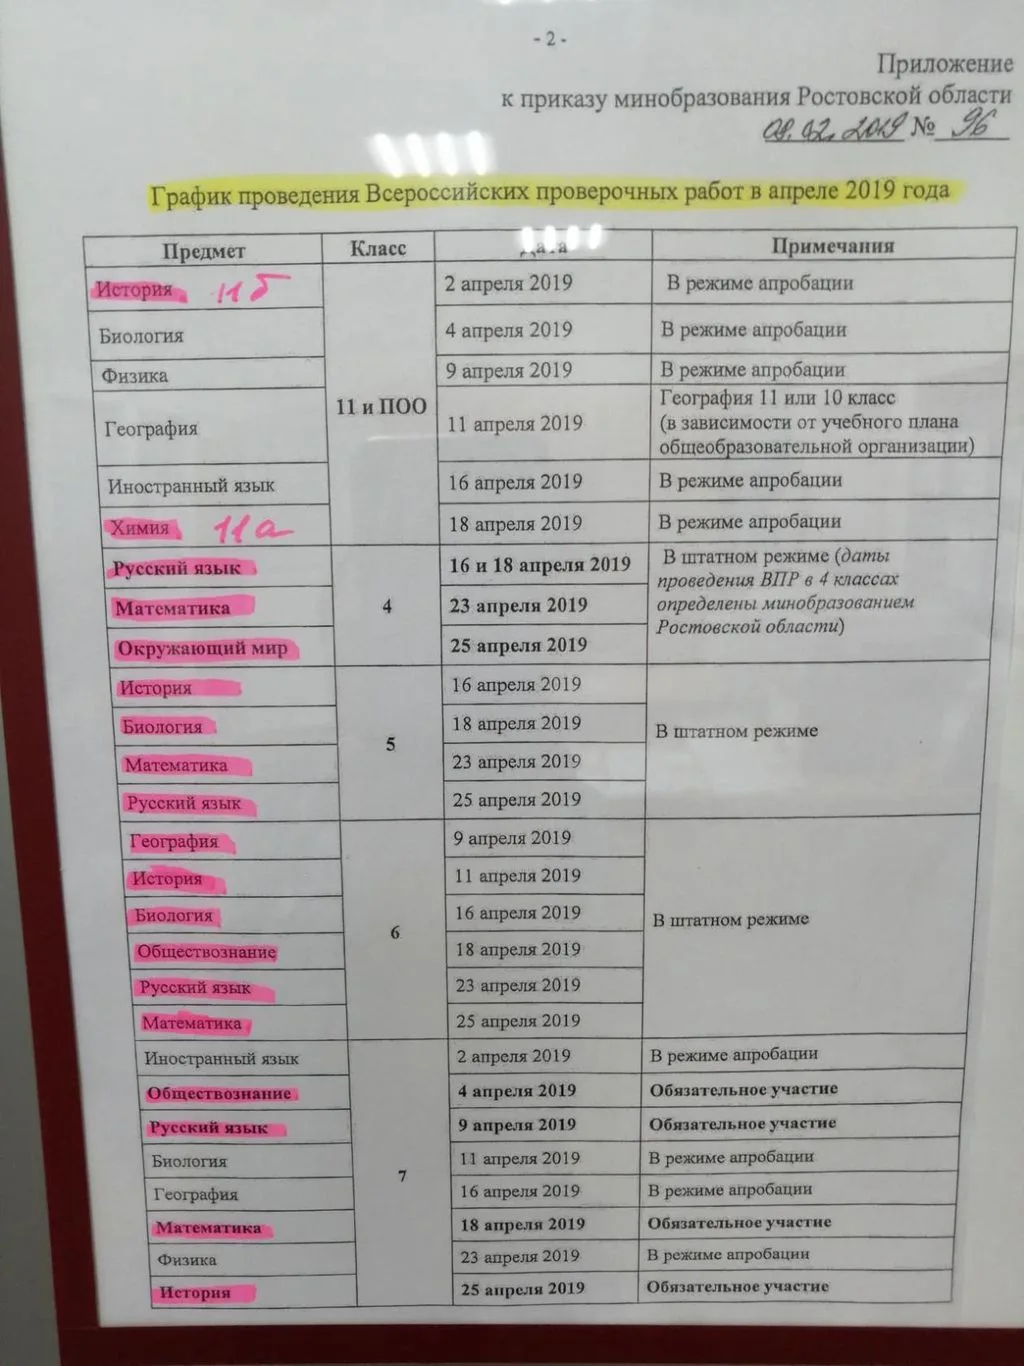 - 2 -
Приложение
к приказу минобразования Ростовской области
09.02.2019 № 96
График проведения Всероссийских проверочных работ в апреле 2019 года
Предмет Класс Дата Примечания
История 11б 2 апреля 2019 В режиме апробации
Биология 4 апреля 2019 В режиме апробации
Физика 9 апреля 2019 В режиме апробации
11 и ПОО
География 11 апреля 2019 География 11 или 10 класс
(в зависимости от учебного плана
общеобразовательной организации)
Иностранный язык 16 апреля 2019 В режиме апробации
Химия 11а 18 апреля 2019 В режиме апробации
Русский язык 16 и 18 апреля 2019 В штатном режиме (даты
проведения ВПР в 4 классах
Математика 4 23 апреля 2019 определены минобразованием
Ростовской области)
Окружающий мир 25 апреля 2019
История 16 апреля 2019
Биология 18 апреля 2019
5 В штатном режиме
Математика 23 апреля 2019
Русский язык 25 апреля 2019
География 9 апреля 2019
История 11 апреля 2019
Биология 16 апреля 2019
6 В штатном режиме
Обществознание 18 апреля 2019
Русский язык 23 апреля 2019
Математика 25 апреля 2019
Иностранный язык 2 апреля 2019 В режиме апробации
Обществознание 4 апреля 2019 Обязательное участие
Русский язык 9 апреля 2019 Обязательное участие
Биология 11 апреля 2019 В режиме апробации
7
География 16 апреля 2019 В режиме апробации
Математика 18 апреля 2019 Обязательное участие
Физика 23 апреля 2019 В режиме апробации
История 25 апреля 2019 Обязательное участие